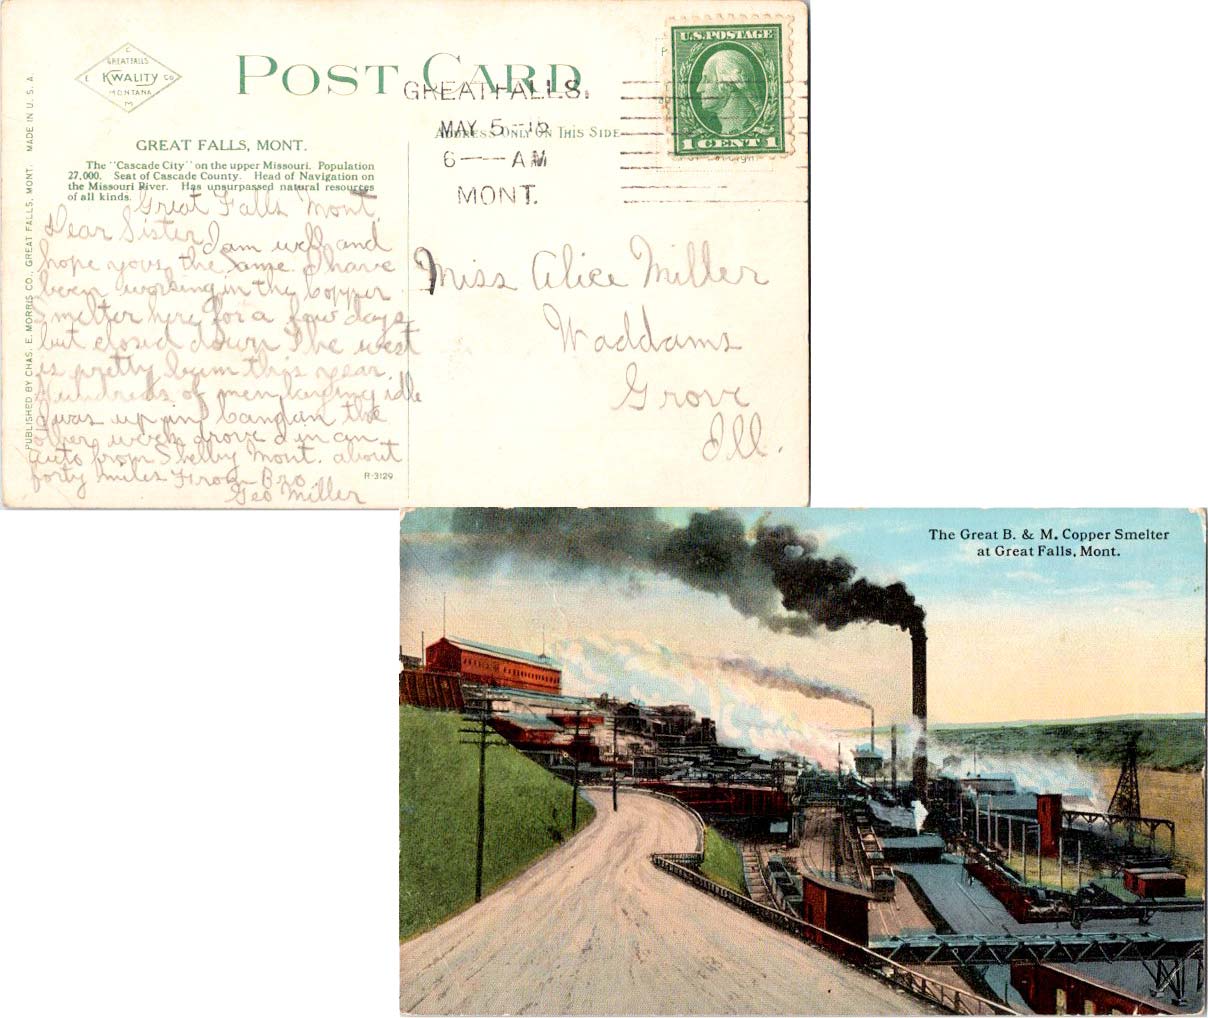 C
GREAT FALLS
E KWALITY CO
MONTANA
M
POST CARD
GREAT FALLS.
MAY 5
6 — AM
MONT.
U.S. POSTAGE
1 CENT 1
ADDRESS ONLY ON THIS SIDE
GREAT FALLS, MONT.
The "Cascade City" on the upper Missouri. Population
27,000. Seat of Cascade County. Head of Navigation on
the Missouri River. Has unsurpassed natural resources
of all kinds.
PUBLISHED BY CHAS. E. MORRIS CO., GREAT FALLS, MONT. MADE IN U. S. A.
Great Falls Mont.
Dear Sister I am well and
hope you the same. I have
been working in the Copper
Smelter here for a few days
but closed down the west
is pretty bum this year
Hundreds of men laying idle
I was up in the
other week drove d in an
auto from Shelby Mont. about
forty miles From Bro
Geo Miller
R-3129
Miss Alice Miller
Waddams
Grove
Ill.
The Great B. & M. Copper Smelter
at Great Falls, Mont.